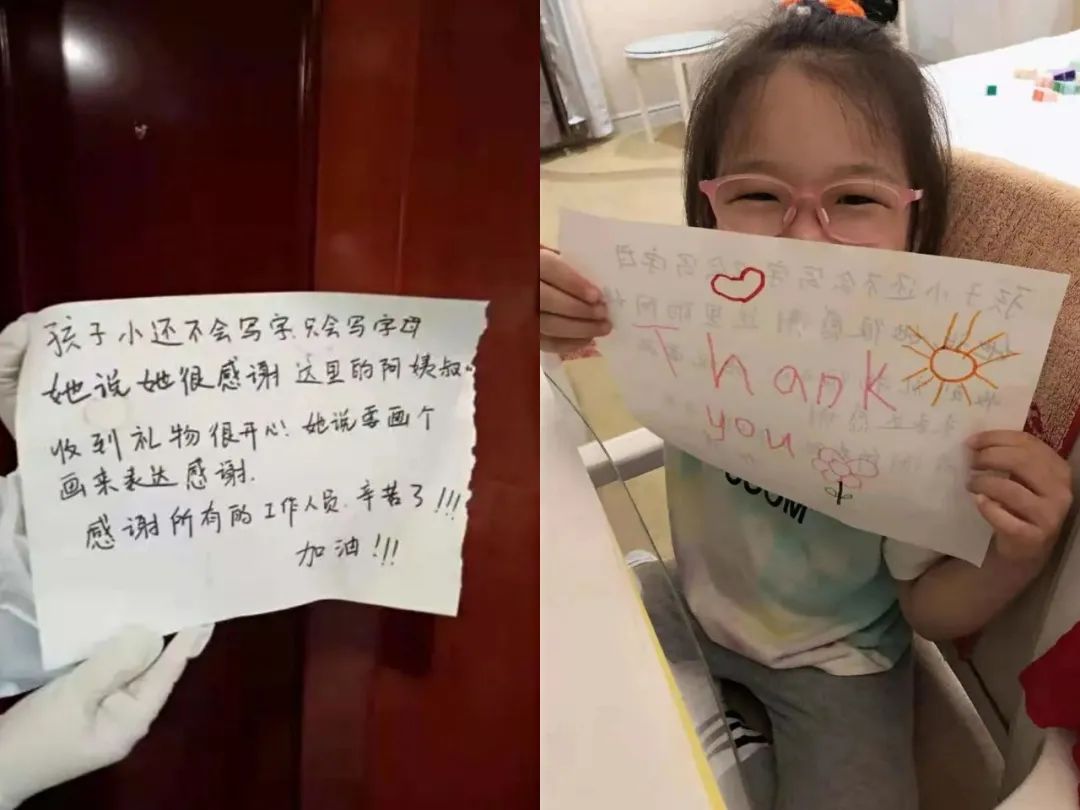 孩子小还不会写字,只会写字母
她说她很感谢这里的阿姨叔。
收到礼物很开心!她说要画个
画来表达感谢.
感谢所有的工作人员.辛苦了!!!
加油!!!
Thank
you